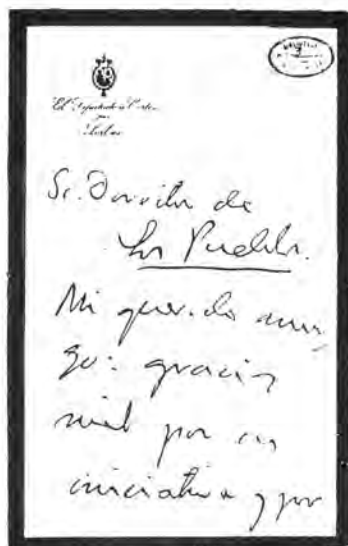 El Diputado a Cortes
por
Sr. Director de
La Puebla.
Mi querido ami
go: gracias
mil por su
iniciativa y por